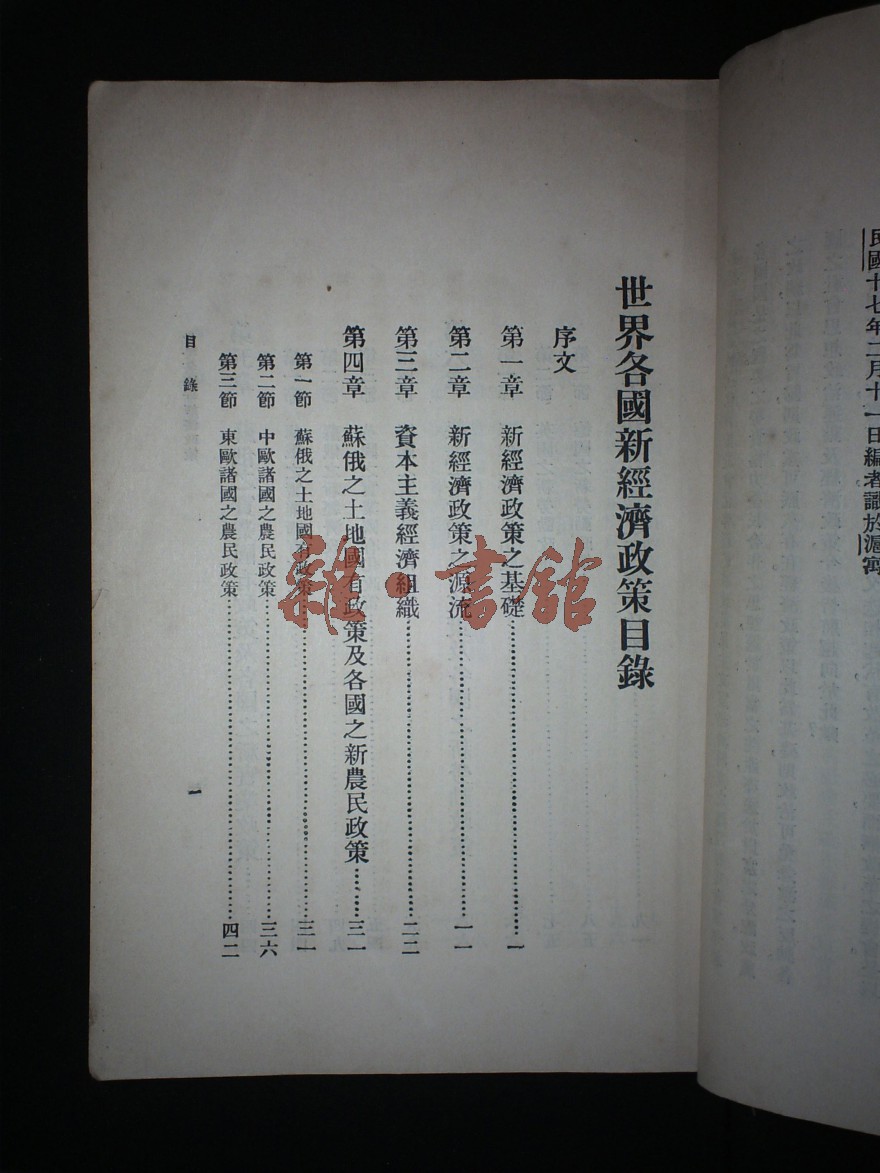 民國十七年二月十一日編者識於滬寓
世界各國新經濟政策目錄
序文
第一章 新經濟政策之基礎……一
第二章 新經濟政策之源流……一一
第三章 資本主義經濟組織……二二
第四章 蘇俄之土地國有政策及各國之新農民政策……三一
第一節 蘇俄之土地國有政策……三一
第二節 中歐諸國之農民政策……三六
第三節 東歐諸國之農民政策……四二
目錄 一
雜·書館